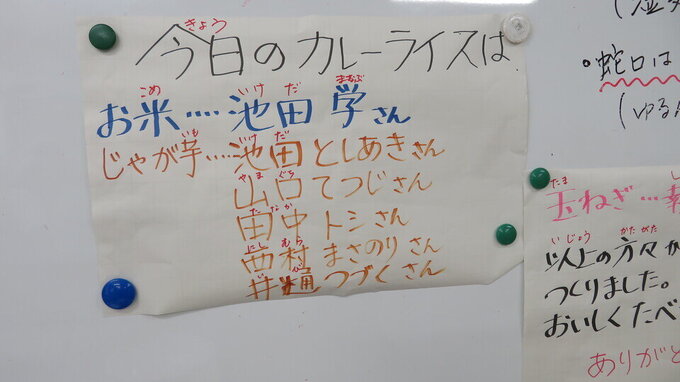 今日のカレーライスは
きょう
お米‥‥池田 学さん
こめ いけ だ まなぶ
じゃが芋‥‥池田としあきさん
いも いけ だ
山口てつじさん
やま ぐち
田中トシさん
た なか
西村まさのりさん
にし むら
つづくさん
(ゆるん
・蛇口は
玉ねぎ…
たま
以上の方々が
いじょう かたがた
つくりました。
おいしくたべ
ありがと